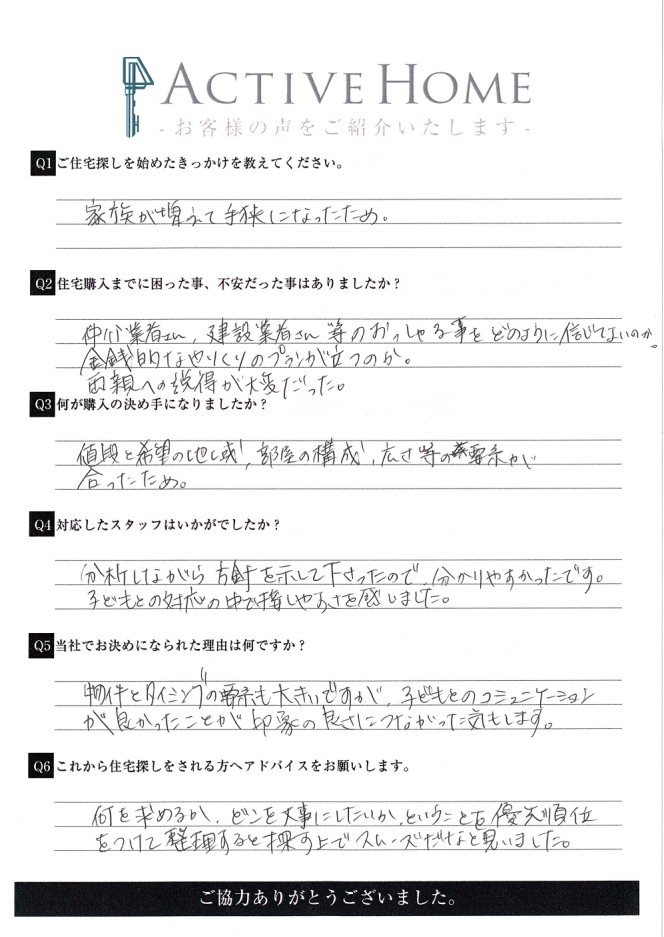 ACTIVE HOME
- お客様の声をご紹介いたします -
Q1 ご住宅探しを始めたきっかけを教えてください。
家族が増えて手狭になったため。
Q2 住宅購入までに困った事、不安だった事はありましたか？
仲介業者さん、建設業者さん等のおっしゃる事をどのように信じてよいのか。
金銭的なやりくりのプランが立つのか。
両親への説得が大変だった。
Q3 何が購入の決め手になりましたか？
値段と希望の地域、部屋の構成、広さ等の要素が
合ったため。
Q4 対応したスタッフはいかがでしたか？
分析しながら方針を示して下さったので、分かりやすかったです。
子どもとの対応の中で接しやすさを感じました。
Q5 当社でお決めになられた理由は何ですか？
物件とタイミングの要素も大きいですが、子どもとのコミュニケーション
が良かったことが印象の良さにつながった気もします。
Q6 これから住宅探しをされる方へアドバイスをお願いします。
何を求めるか、どこを大事にしたいか、ということを優先順位
をつけて整理すると探す上でスムーズだなと思いました。
ご協力ありがとうございました。